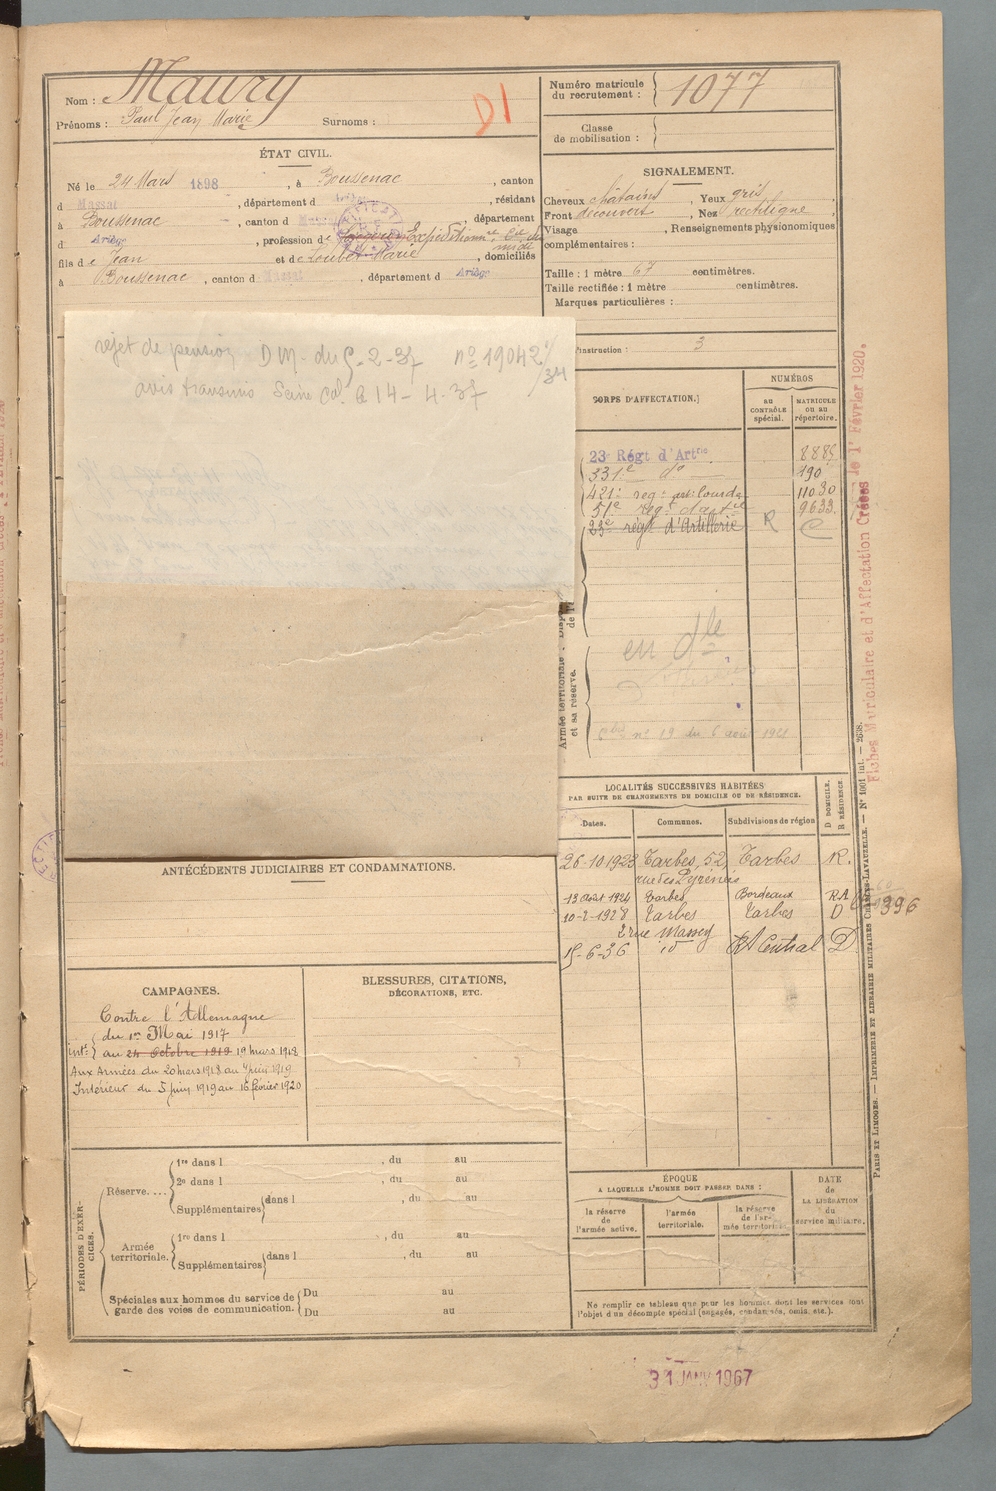 Nom : Maury
Prénoms : Paul Jean Marie Surnoms :
D1
Numéro matricule
du recrutement : 1077
Classe
de mobilisation :
ÉTAT CIVIL.
Né le 24 Mars 1898, à Boussenac, canton
d Massat, département d, résidant
à Boussenac, canton d, département
d Ariège, profession de Expéditionnre Cie du
midi
fils de Jean et de Loubet Marie, domiciliés
à Boussenac, canton d Massat, département d Ariège
SIGNALEMENT.
Cheveux châtains, Yeux gris
Front découvert, Nez rectiligne
Visage, Renseignements physionomiques
complémentaires :
Taille : 1 mètre 67 centimètres.
Taille rectifiée : 1 mètre centimètres.
Marques particulières :
rejet de pension DM. du 5-2-37 no 19042/34
avis transmis Seine Cal. le 14-4-37
instruction : 3
CORPS D'AFFECTATION.
NUMÉROS
au
CONTRÔLE
spécial.
MATRICULE
ou au
répertoire.
23e Régt d'Artrie 8885
331e do 190
421e reg: art: lourde 11030
51e reg: d'artie 9633
23e régt d'Artillerie R C
en dle
no 19 du 6 août 1921
Armée territoriale
et sa réserve.
Fiches Matriculaire et d'Affectation Créées le 1er Février 1920.
LOCALITÉS SUCCESSIVES HABITÉES
PAR SUITE DE CHANGEMENTS DE DOMICILE OU DE RÉSIDENCE.
Dates. Communes. Subdivisions de région
D DOMICILE.
R RÉSIDENCE.
26-10-1923 Tarbes, 52 Tarbes R.
rue des Pyrénées
13 Août 1924 Tarbes Bordeaux RA
10-2-1928 Tarbes Tarbes D
2 rue Massey
15-6-36 id Rt Central D
396
ANTÉCÉDENTS JUDICIAIRES ET CONDAMNATIONS.
CAMPAGNES.
Contre l'Allemagne
du 1er Mai 1917
intr au 24 Octobre 1919 19 mars 1918
Aux Armées du 20 mars 1918 au 4 juin 1919
Intérieur du 5 juin 1919 au 16 février 1920
BLESSURES, CITATIONS,
DÉCORATIONS, ETC.
PÉRIODES D'EXER-
CICES.
Réserve....
1re dans l , du au
2e dans l , du au
Supplémentaires dans l , du au
Armée
territoriale.
1re dans l , du au
Supplémentaires dans l , du au
Spéciales aux hommes du service de
garde des voies de communication.
Du au
Du au
ÉPOQUE
A LAQUELLE L'HOMME DOIT PASSER DANS :
la réserve
de
l'armée active.
l'armée
territoriale.
la réserve
de l'ar-
mée territoriale.
DATE
de
LA LIBÉRATION
du
service militaire.
Ne remplir ce tableau que pour les hommes dont les services font
l'objet d'un décompte spécial (engagés, condamnés, omis, etc.).
PARIS ET LIMOGES. — IMPRIMERIE ET LIBRAIRIE MILITAIRES CHARLES-LAVAUZELLE. — No 1001 int. — 2638.
31 JANV 1967